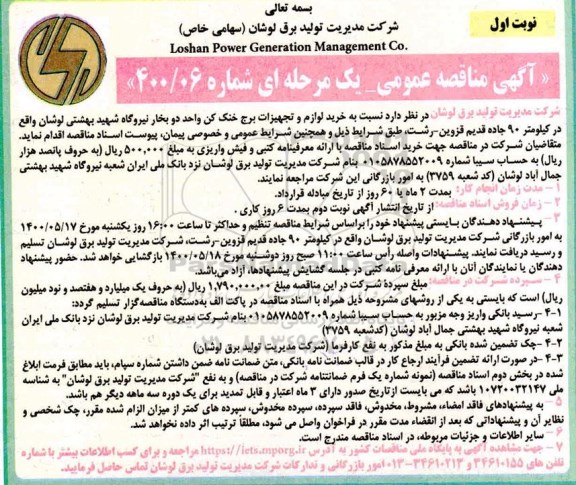 بسمه تعالی
شرکت مدیریت تولید برق لوشان (سهامی خاص)
Loshan Power Generation Management Co.
نوبت اول
« آگهی مناقصه عمومی_ یک مرحله ای شماره ۴۰۰/۰۶»
شرکت مدیریت تولید برق لوشان در نظر دارد نسبت به خرید لوازم و تجهیزات برج خنک کن واحد دو بخار نیروگاه شهید بهشتی لوشان واقع
در کیلومتر ۹۰ جاده قدیم قزوین-رشت، طبق شرایط ذیل و همچنین شرایط عمومی و خصوصی پیمان، پیوست اسناد مناقصه اقدام نماید.
متقاضیان شرکت در مناقصه جهت خرید اسناد مناقصه با ارائه معرفینامه کتبی و فیش واریزی به مبلغ ۵۰۰,۰۰۰ ریال (به حروف پانصد هزار
ریال) به حساب سیبا شماره ۰۱۰۵۸۷۸۵۵۲۰۰۹ بنام شرکت مدیریت تولید برق لوشان نزد بانک ملی ایران شعبه نیروگاه شهید بهشتی
جمال آباد لوشان (کد شعبه ۳۷۵۹) به امور بازرگانی این شرکت مراجعه نمایند.
۱ – مدت زمان انجام کار: بمدت ۲ ماه یا ۶۰ روز از تاریخ مبادله قرارداد.
۲ – زمان فروش اسناد مناقصه: از تاریخ انتشار آگهی نوبت دوم بمدت ۶ روز کاری .
۳ – پیشنهاد دهندگان بایستی پیشنهاد خود را براساس شرایط مناقصه تنظیم و حداکثر تا ساعت ۱۶:۰۰ روز یکشنبه مورخ ۱۴۰۰/۰۵/۱۷
به امور بازرگانی شرکت مدیریت تولید برق لوشان واقع در کیلومتر ۹۰ جاده قدیم قزوین-رشت، شرکت مدیریت تولید برق لوشان تسلیم
و رسید دریافت نمایند. پیشنهادات واصله رأس ساعت ۱۱:۰۰ صبح روز دوشنبه مورخ ۱۴۰۰/۰۵/۱۸ بازگشایی خواهد شد. حضور پیشنهاد
دهندگان یا نمایندگان آنان با ارائه معرفی نامه کتبی در جلسه گشایش پیشنهادها، آزاد می‌باشد.
۴ – سپرده شرکت در مناقصه: مبلغ سپردهٔ شرکت در این مناقصه مبلغ ۱,۷۹۰,۰۰۰,۰۰۰ ریال (به حروف یک میلیارد و هفتصد و نود میلیون
ریال) است که بایستی به یکی از روشهای مشروحه ذیل همراه با اسناد مناقصه در پاکت الف به‌دستگاه مناقصه‌گزار تسلیم گردد:
۴-۱ -رسید بانکی واریز وجه مزبور به حساب سیبا شماره ۰۱۰۵۸۷۸۵۵۲۰۰۹ بنام شرکت مدیریت تولید برق لوشان نزد بانک ملی ایران
شعبه نیروگاه شهید بهشتی جمال آباد لوشان (کدشعبه ۳۷۵۹)
۴-۲ -چک تضمین شده بانکی به مبلغ مذکور به نفع کارفرما (شرکت مدیریت تولید برق لوشان)
۴-۳ -در صورت ارائه تضمین فرآیند ارجاع کار در قالب ضمانت نامه بانکی، متن ضمانت نامه ضمن داشتن شماره سپام، باید مطابق فرمت ابلاغ
شده در بخش دوم اسناد مناقصه (نمونه شماره یک فرم ضمانتنامه شرکت در مناقصه) و به نفع "شرکت مدیریت تولید برق لوشان" به شناسه
ملی ۱۰۷۲۰۰۳۲۱۴۷ باشد که می بایست ازتاریخ صدور دارای ۳ ماه اعتبار و قابل تمدید برای یک دوره سه ماهه دیگر هم باشد.
۵ – به پیشنهادهای فاقد امضاء، مشروط، مخدوش، فاقد سپرده، سپرده مخدوش، سپرده های کمتر از میزان الزام شده مقرر، چک شخصی و
نظایر آن و پیشنهاداتی که بعد از انقضاء مدت مقرر در فراخوان واصل می شود، مطلقاً ترتیب اثر داده نخواهد شد.
۶ – سایر اطلاعات و جزئیات مربوطه، در اسناد مناقصه مندرج است.
۷ – جهت مشاهده آگهی به پایگاه ملی مناقصات کشور به آدرس https://iets.mporg.ir مراجعه و برای کسب اطلاعات بیشتر با شماره
تلفن های ۳۴۶۱۰۱۵۵ و ۳۴۶۱۰۲۱۳-۰۱۳ امور بازرگانی و تدارکات شرکت مدیریت تولید برق لوشان تماس حاصل فرمایید.